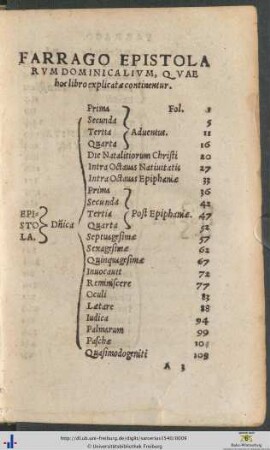 FARRAGO EPISTOLA
RVM DOMINICALIVM, QVAE
hoc libro explicatæ continentur.
Prima Fol. 2
Secunda 5
Tertia Aduentus. 11
Quarta 16
Die Natalitiorum Christi 20
Intra Octauas Natiuitatis 27
Intra Octauas Epiphaniæ 33
Prima 36
Secunda 42
EPI- Tertia Post Epiphaniæ. 47
STO Dñica Quarta 52
LA. Septuagesimæ 57
Sexagesimæ 62
Quinquagesimæ 67
Inuocauit 72
Reminiscere 77
Oculi 83
Lætare 88
Iudica 94
Palmarum 99
Paschæ 104
Quasimodogeniti 109
A 3
© Universitätsbibliothek Freiburg